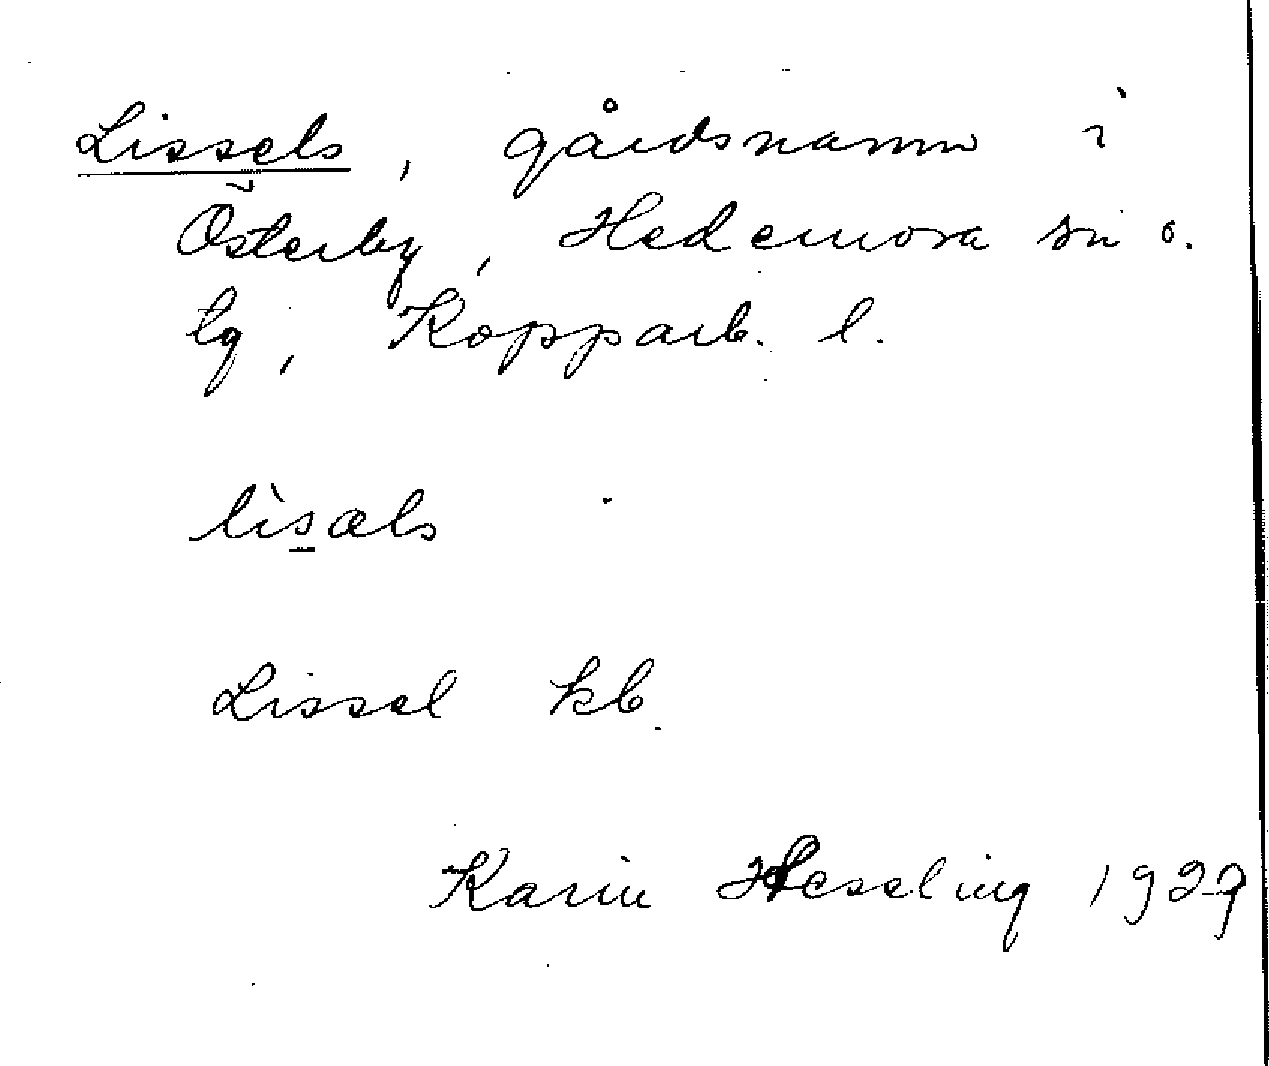 Lissels, gårdsnamn i
Österby, Hedemora sn o.
tg, Kopparb. l.
lìsæls
Lissel kb.
Karin Hesseling 1929